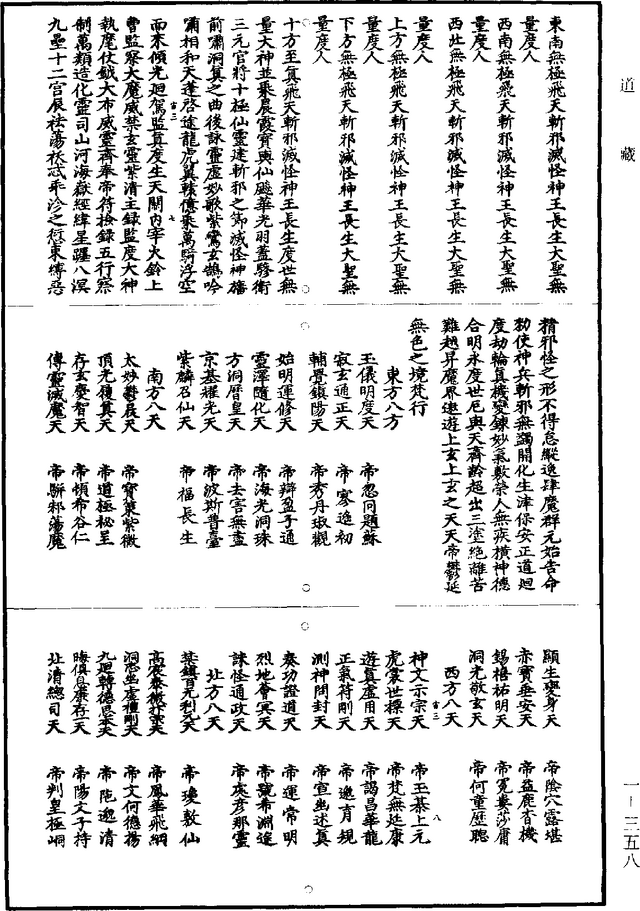 道藏
東南無極飛天斬邪滅怪神王長生大聖無
量度人
西南無極飛天斬邪滅怪神王長生大聖無
量度人
西北無極飛天斬邪滅怪神王長生大聖無
量度人
上方無極飛天斬邪滅怪神王長生大聖無
量度人
下方無極飛天斬邪滅怪神王長生大聖無
量度人
十方至真飛天斬邪滅怪神王長生度世無
量大神並乘晨霞寶輿仙飈華光羽蓋騄衛
三元官將十極仙靈建斬邪之節滅怪神旛
前嘯洞真之曲後詠靈虛妙歌紫鸞玄鵠吟
嘯相和天蓬啓途龍虎翼轅億乘萬騎浮空
而來傾光迴駕監真度生天關內宰火鈴上
曹監察大魔威禁玄靈紫清主錄監度大神
執麾仗鉞大布威靈齊奉帝符檢錄五行察
制萬類造化靈司山河海嶽經緯星躔八溟
九壘十二宮辰祛蕩袄忒乖沴之愆束縛惡
精邪怪之形不得怠縱逸肆魔群元始告命
勑使神兵斬邪無蠲開化生津保安正道迴
度劫輪真機變鍊妙氣敷榮人無疾橫神德
合明永度世厄與天齊齡超出三塗絕離苦
難趙昇魔界遨遊上玄上玄之天天帝鬱延
無色之境梵行
東方八方
玉儀明度天 帝忽問題蘇
寂玄通正天 帝寥逸初
輔覺鎮陽天 帝秀丹淑觀
始明運修天 帝辯盈子通
靈澤隨化天 帝海光洞珠
方洞曆皇天 帝去害無盡
京基耀光天 帝波斯普臺
紫麟召仙天 帝福長生
南方八天
太妙鬱晨天 帝寶策紫微
頂光復真天 帝道極松呈
存玄變智天 帝頓希谷仁
傳靈滅魔天 帝駢邪蕩魔
顯生變身天 帝陰穴露堪
赤寶垂安天 帝益鹿杳機
錫禧祐明天 帝冤蔞莎庸
洞光敬玄天 帝何童歷聰
西方八天
神文示宗天 帝王碁上元
虎裳世標天 帝梵無延康
遊真虛用天 帝謁昌華龍
正氣符剛天 帝邀育規
測神問封天 帝宣幽述真
奏功證道天 帝運常明
烈地薈冥天 帝號希淵逵
誅怪通政天 帝處彥那靈
北方八天
禁鎮百元利元天 帝瓊敷仙
帝鳳華飛綱
帝文何德蕩
九廻轉德 天 帝陁邈清
帝陽文子持
北清總司天 帝判皇極峒
一-三五八